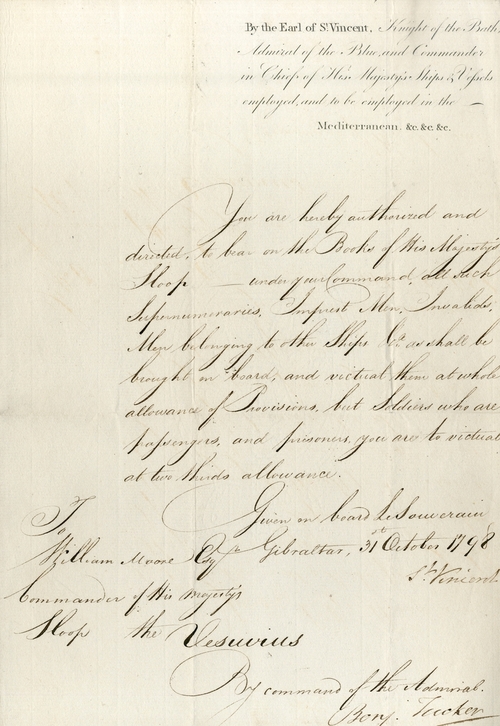 By the Earl of St. Vincent, Knight of the Bath,
Admiral of the Blue, and Commander
in Chief of His Majesty's Ships & Vessels
employed, and to be employed in the —
Mediterranean. &c. &c. &c.
You are hereby authorized and
directed, to bear on the Books of His Majesty's
Sloop — under your Command, all such
Supernumeraries, Imprest Men, Invalids,
Men belonging to other Ships &ca. as shall be
brought on board; and victual them at whole
allowance of Provisions, but Soldiers who are
passengers, and prisoners, you are to victual
at two thirds allowance.
Given on board Le Souverain
Gibraltar, 31st October 1798
St. Vincent
To
William Moore Esqr.
Commander of His Majesty's
Sloop the Vesuvius
By command of the Admiral.
Benj. Tucker